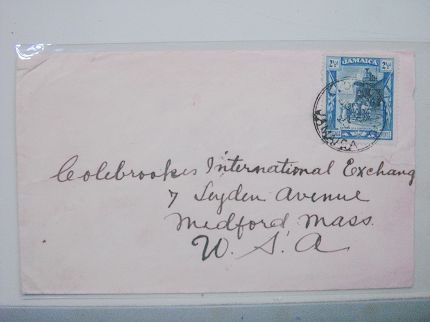 2½ᵈ JAMAICA 2½ᵈ
JAMAICA
Colebrookes International Exchang
7 Leyden Avenue
Medford, Mass.
U. S. A